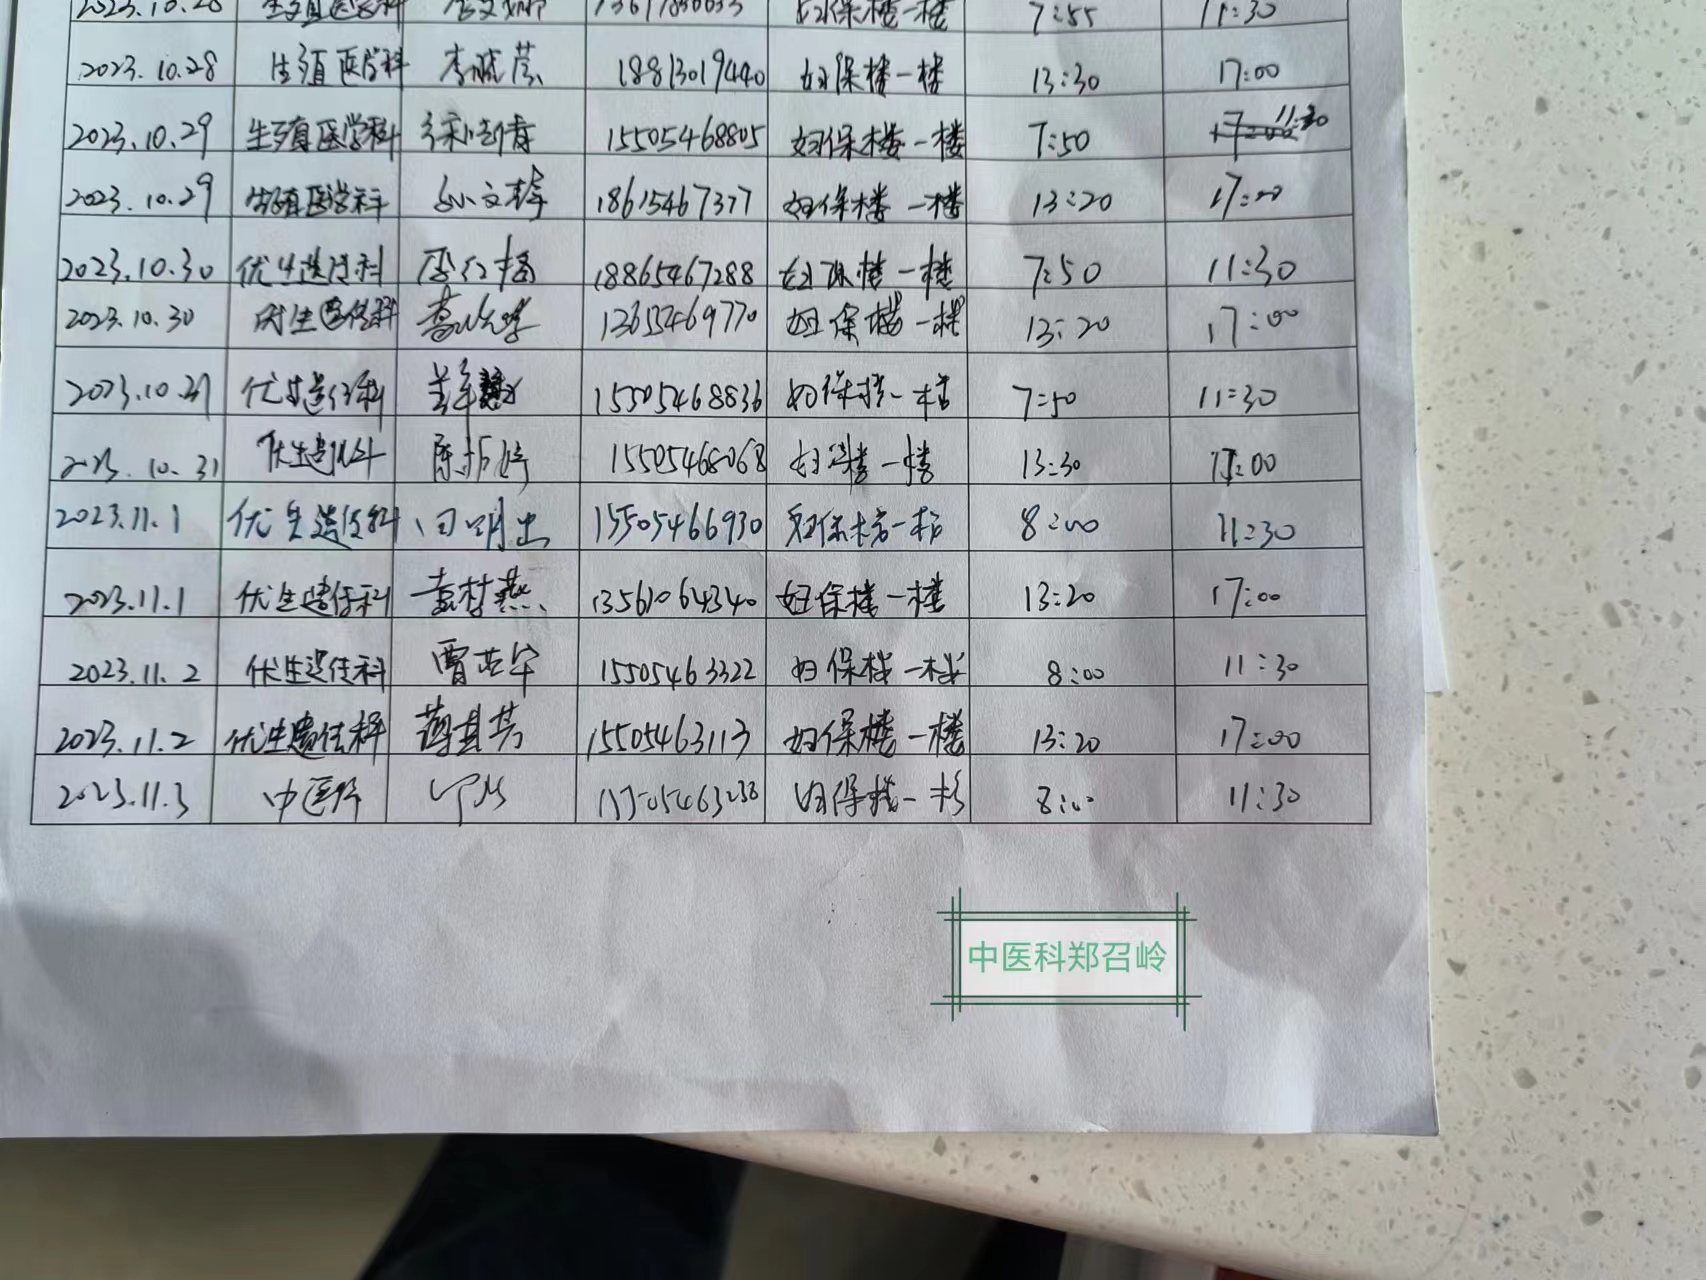 2023.10.28 生殖医学科 7:55 11:30
2023.10.28 生殖医学科 李晓莹 18813019440 妇保楼一楼 13:30 17:00
2023.10.29 生殖医学科 15505468805 妇保楼一楼 7:50 11:30
2023.10.29 生殖医学科 18615467377 妇保楼一楼 13:20 17:00
2023.10.30 优生遗传科 18865467288 妇保楼一楼 7:50 11:30
2023.10.30 优生遗传科 13655469770 妇保楼一楼 13:20 17:00
2023.10.31 优生遗传科 15505468836 妇保楼一楼 7:50 11:30
2023.10.31 优生遗传科 15505468068 妇保楼一楼 13:30 17:00
2023.11.1 优生遗传科 15505466930 妇保楼一楼 8:00 11:30
2023.11.1 优生遗传科 袁梦燕 13561064340 妇保楼一楼 13:20 17:00
2023.11.2 优生遗传科 15505463322 妇保楼一楼 8:00 11:30
2023.11.2 优生遗传科 15505463113 妇保楼一楼 13:20 17:00
2023.11.3 中医科 妇保楼一楼 8:00 11:30
中医科郑召岭